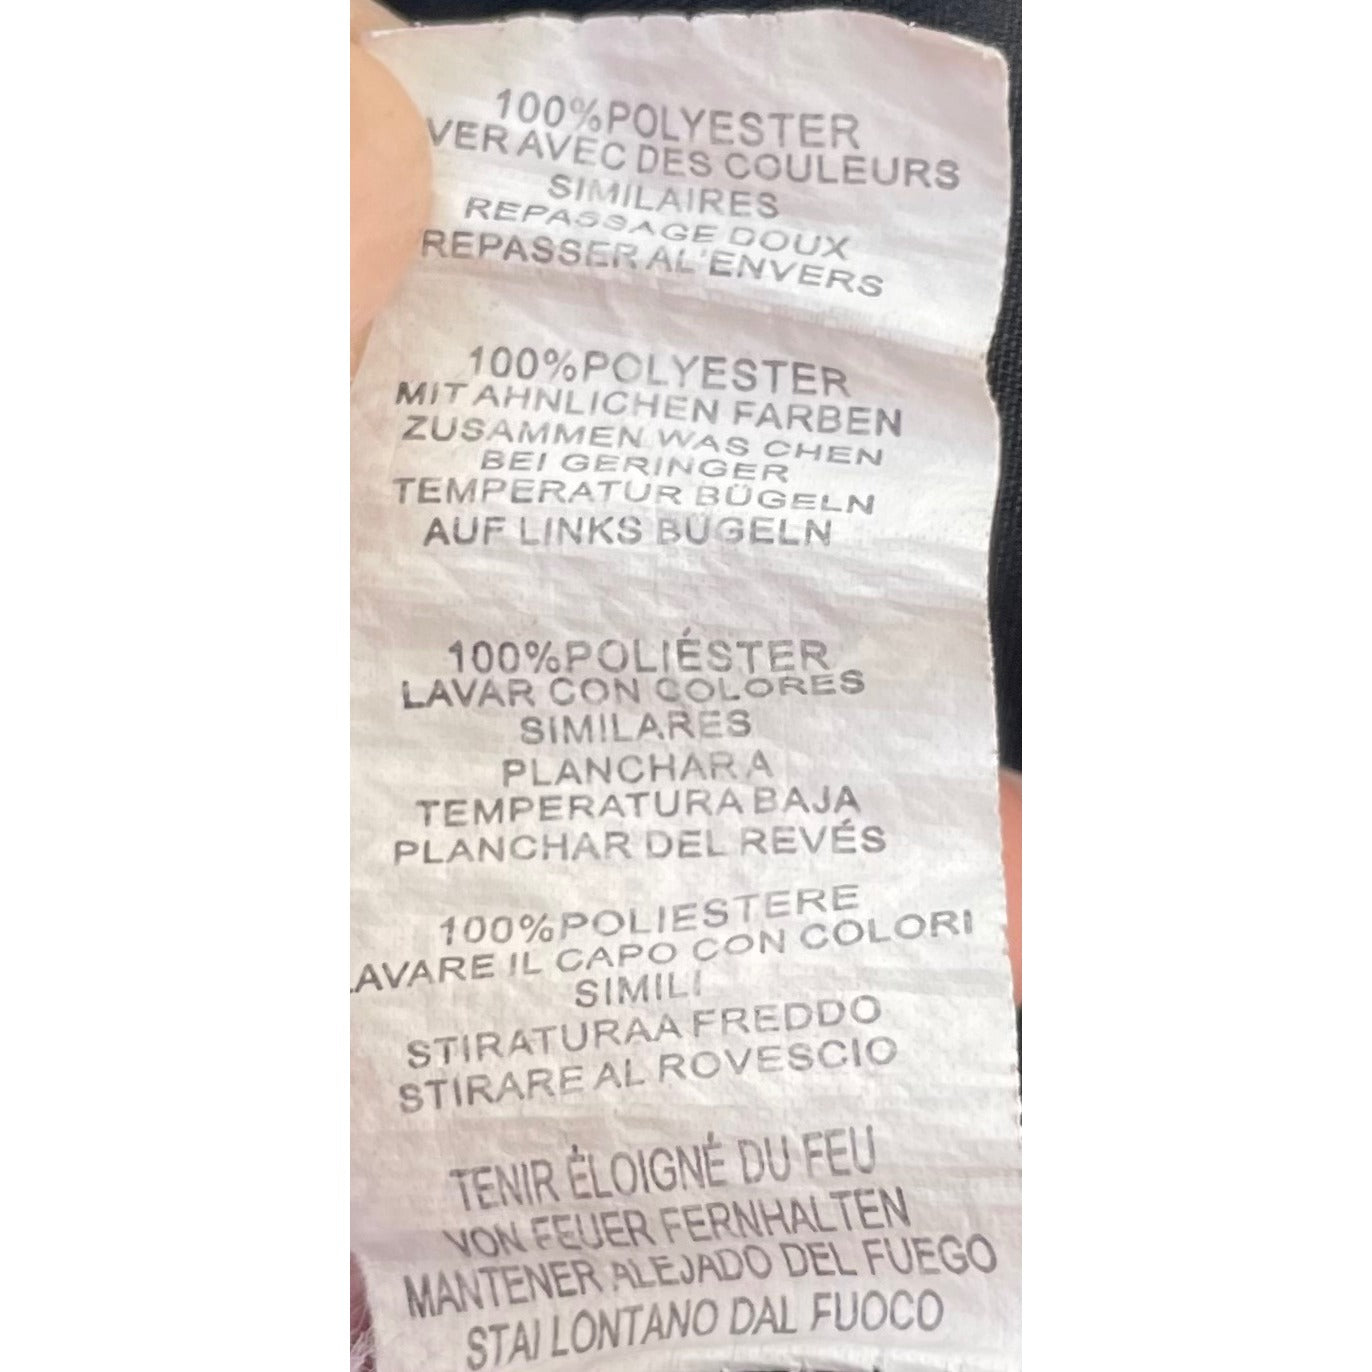 100%POLYESTER
VER AVEC DES COULEURS
SIMILAIRES
REPASSAGE DOUX
REPASSER AL'ENVERS
100%POLYESTER
MIT AHNLICHEN FARBEN
ZUSAMMEN WAS CHEN
BEI GERINGER
TEMPERATUR BÜGELN
AUF LINKS BÜGELN
100%POLIÉSTER
LAVAR CON COLORES
SIMILARES
PLANCHAR A
TEMPERATURA BAJA
PLANCHAR DEL REVÉS
100%POLIESTERE
LAVARE IL CAPO CON COLORI
SIMILI
STIRATURAA FREDDO
STIRARE AL ROVESCIO
TENIR ÉLOIGNÉ DU FEU
VON FEUER FERNHALTEN
MANTENER ALEJADO DEL FUEGO
STAI LONTANO DAL FUOCO